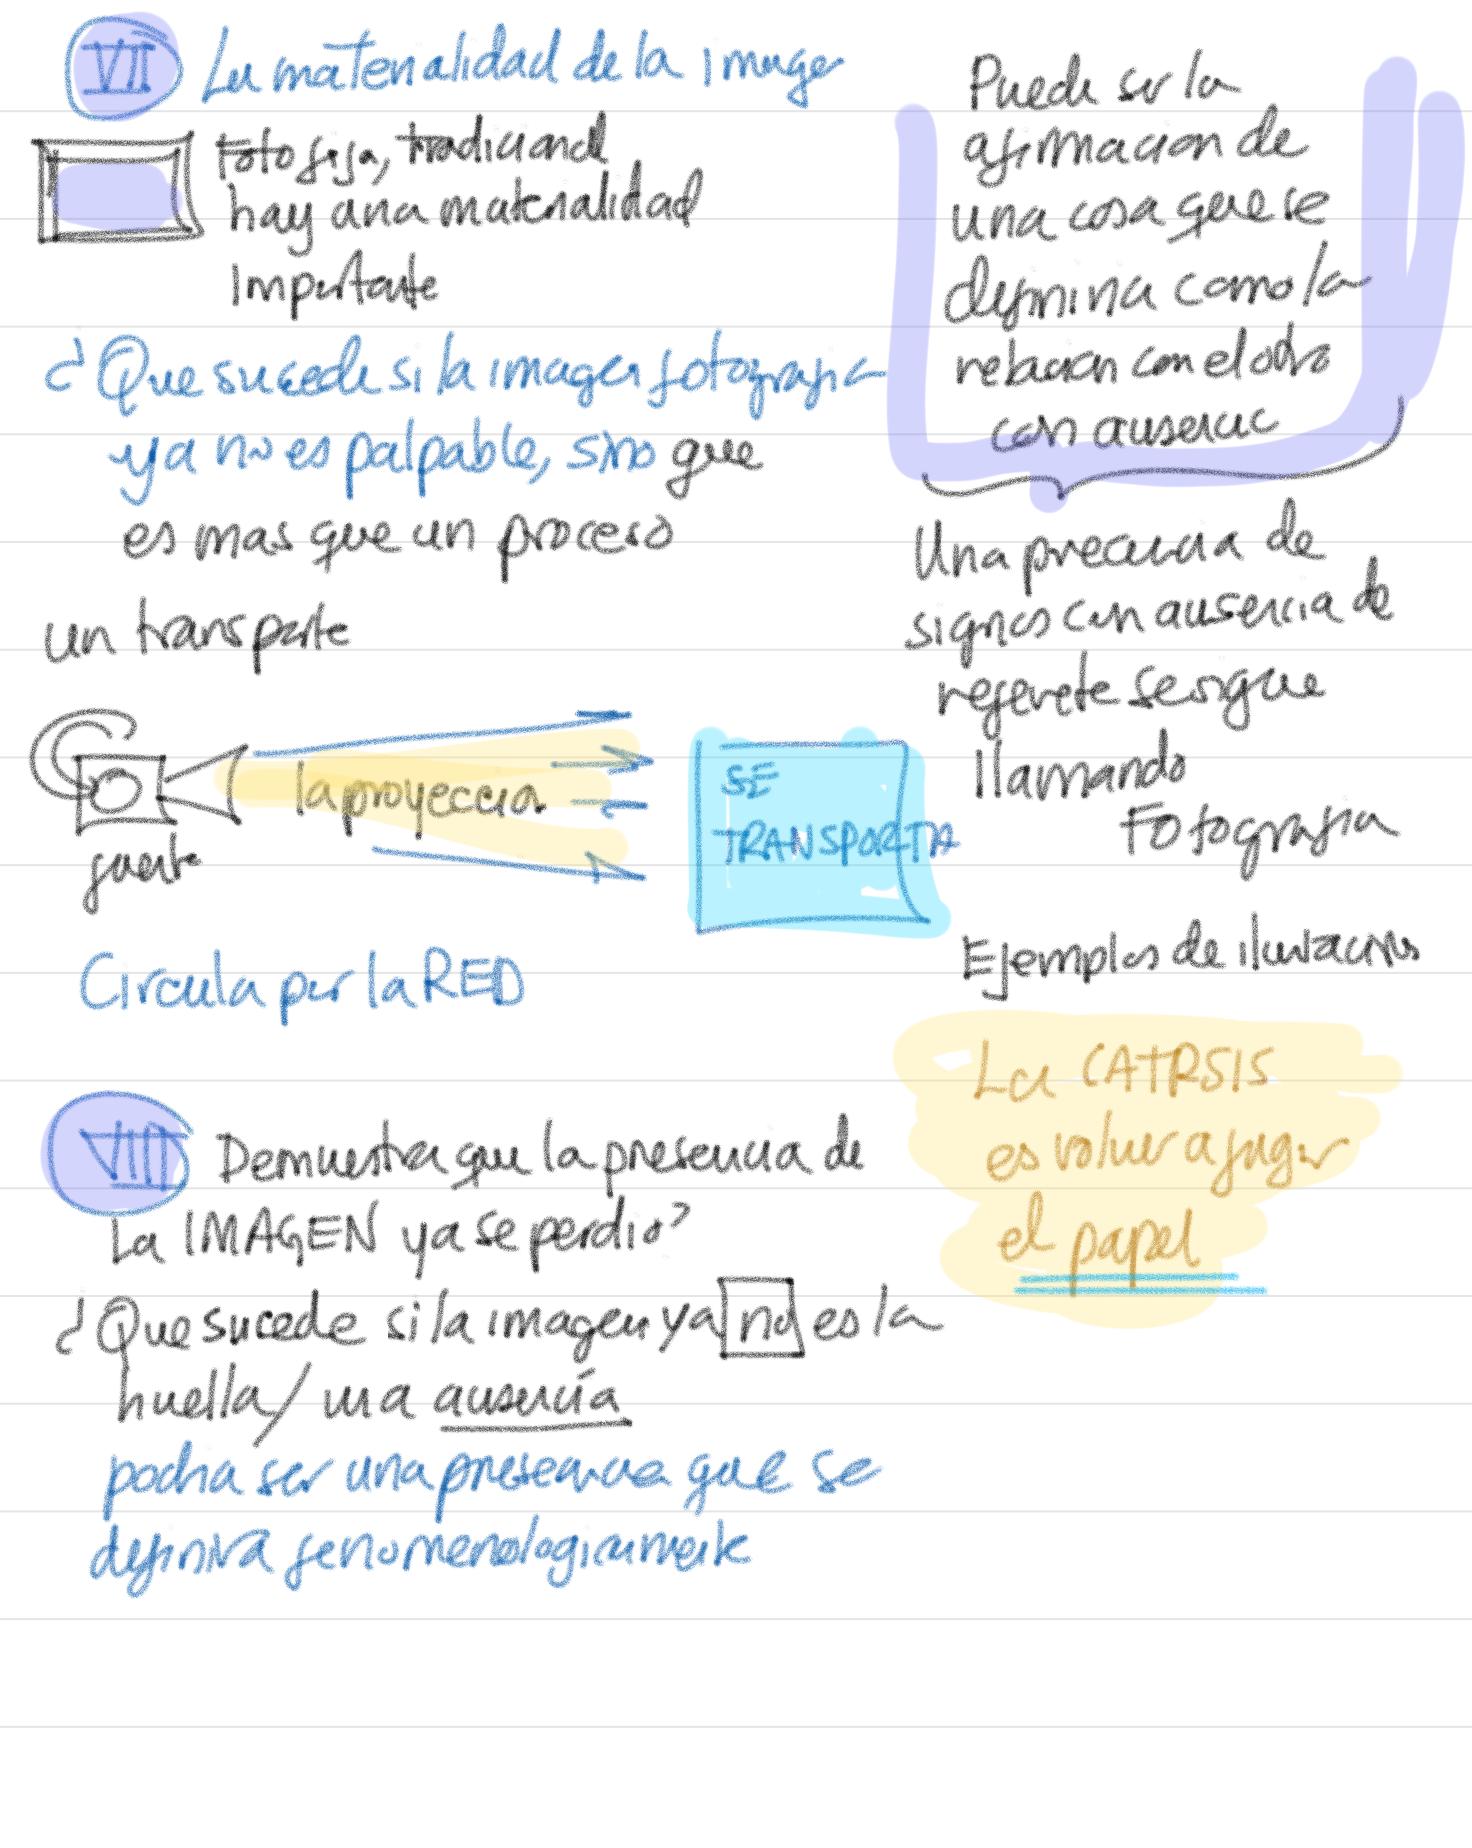 VII La materialidad de la imagen
Foto fija, tradicional
hay una materialidad
Importante
¿Que sucede si la imagen fotografia
ya no es palpable, sino que
es mas que un proceso
un transporte
la proyeccion
fuente
SE
TRANSPORTA
Circula por la RED
VIII Demuestra que la presencia de
La IMAGEN ya se perdio?
¿Que sucede si la imagen ya no es la
huella/ una ausencia
podra ser una presencia que se
definira fenomenologicamente
Puede ser la
afirmacion de
una cosa que se
definina como la
relacion con el otro
con ausencia
Una presencia de
signos con ausencia de
referete se sigue
llamando
Fotografia
Ejemplos de
La CATRSIS
es volver a jugar
el papel